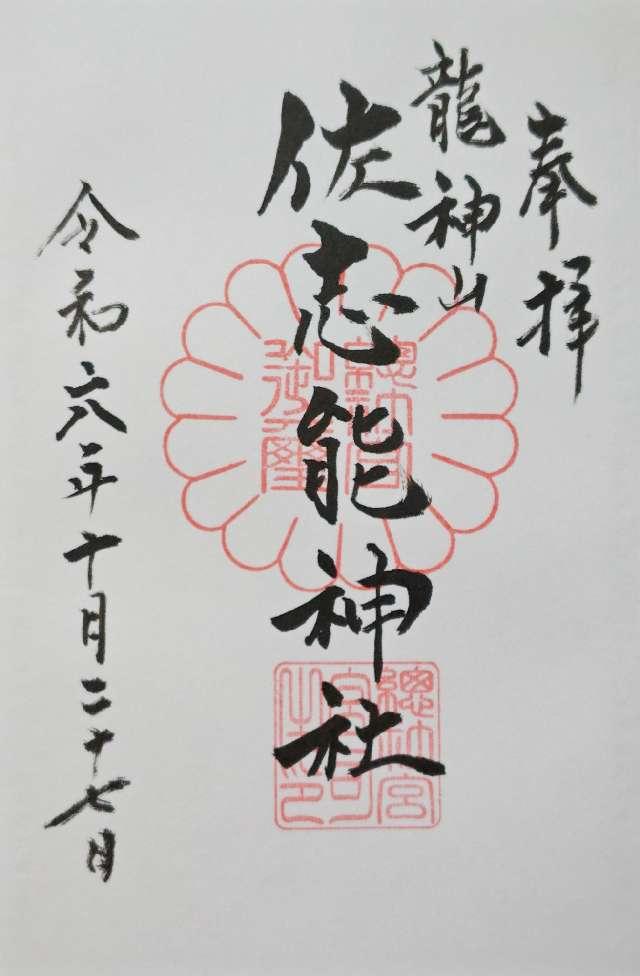 奉拝
龍神山
佐志能神社
令和六年十月二十七日
總社宮